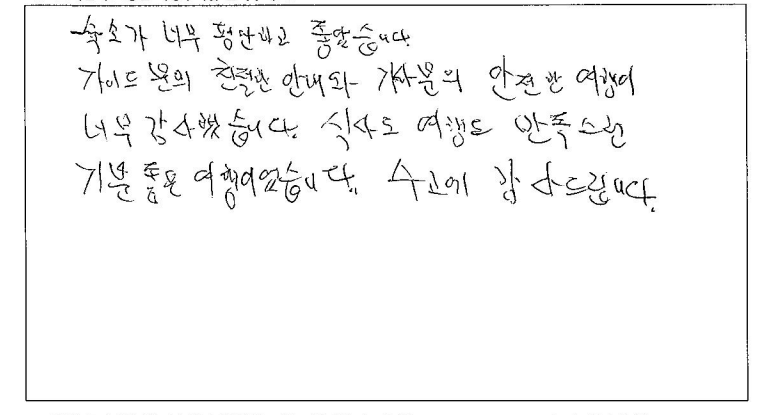 숙소가 너무 편안하고 좋았습니다.
가이드 분의 친절한 안내와 기사분의 안전한 여행이
너무 감사했습니다. 식사도 여행도 만족스런
기분 좋은 여행이었습니다. 수고에 감사드립니다.